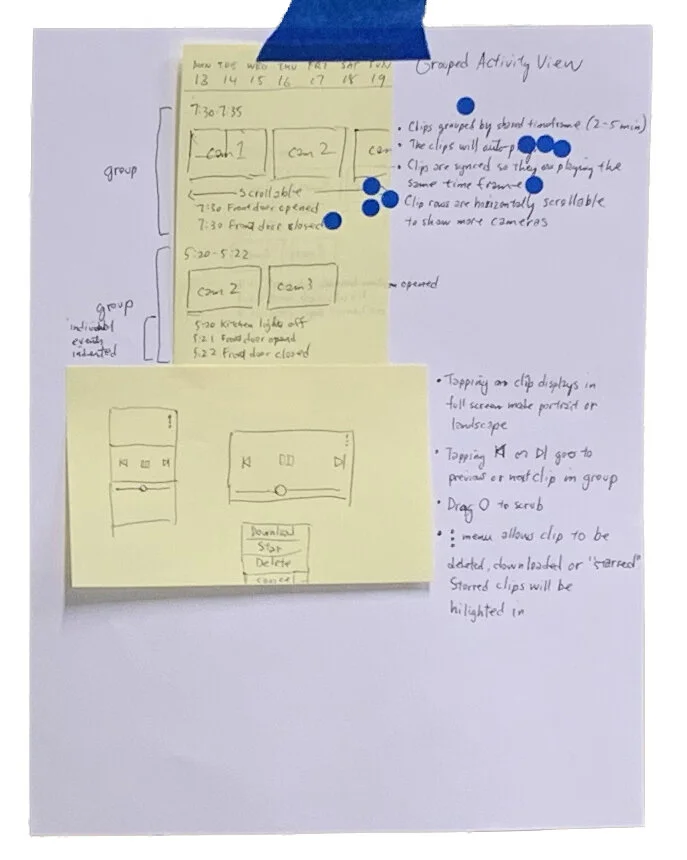 Grouped Activity View
MON TUE WED THU FRI SAT SUN
13 14 15 16 17 18 19
7:30-7:35
cam 1 cam 2 cam
Scrollable
7:30 Front door opened
7:30 Front door closed
group
5:20-5:22
cam 2 cam 3
5:20 Kitchen lights off
5:21 Front door opend
5:22 Front door closed
group
individual
events
indented
• Clips grouped by shared timeframe (2-5 min)
• The clips will auto-p
• Clips are synced so they are playing the
same time frame
Clip rows are horizontally scrollable
to show more cameras
opened
Download
Star
Delete
cancel
• Tapping on clip displays in
full screen mode portrait or
landscape
• Tapping or goes to
previous or next clip in group
• Drag O to scrub
• ⋮ menu allows clip to be
deleted, downloaded or "starred"
Starred clips will be
hilighted in